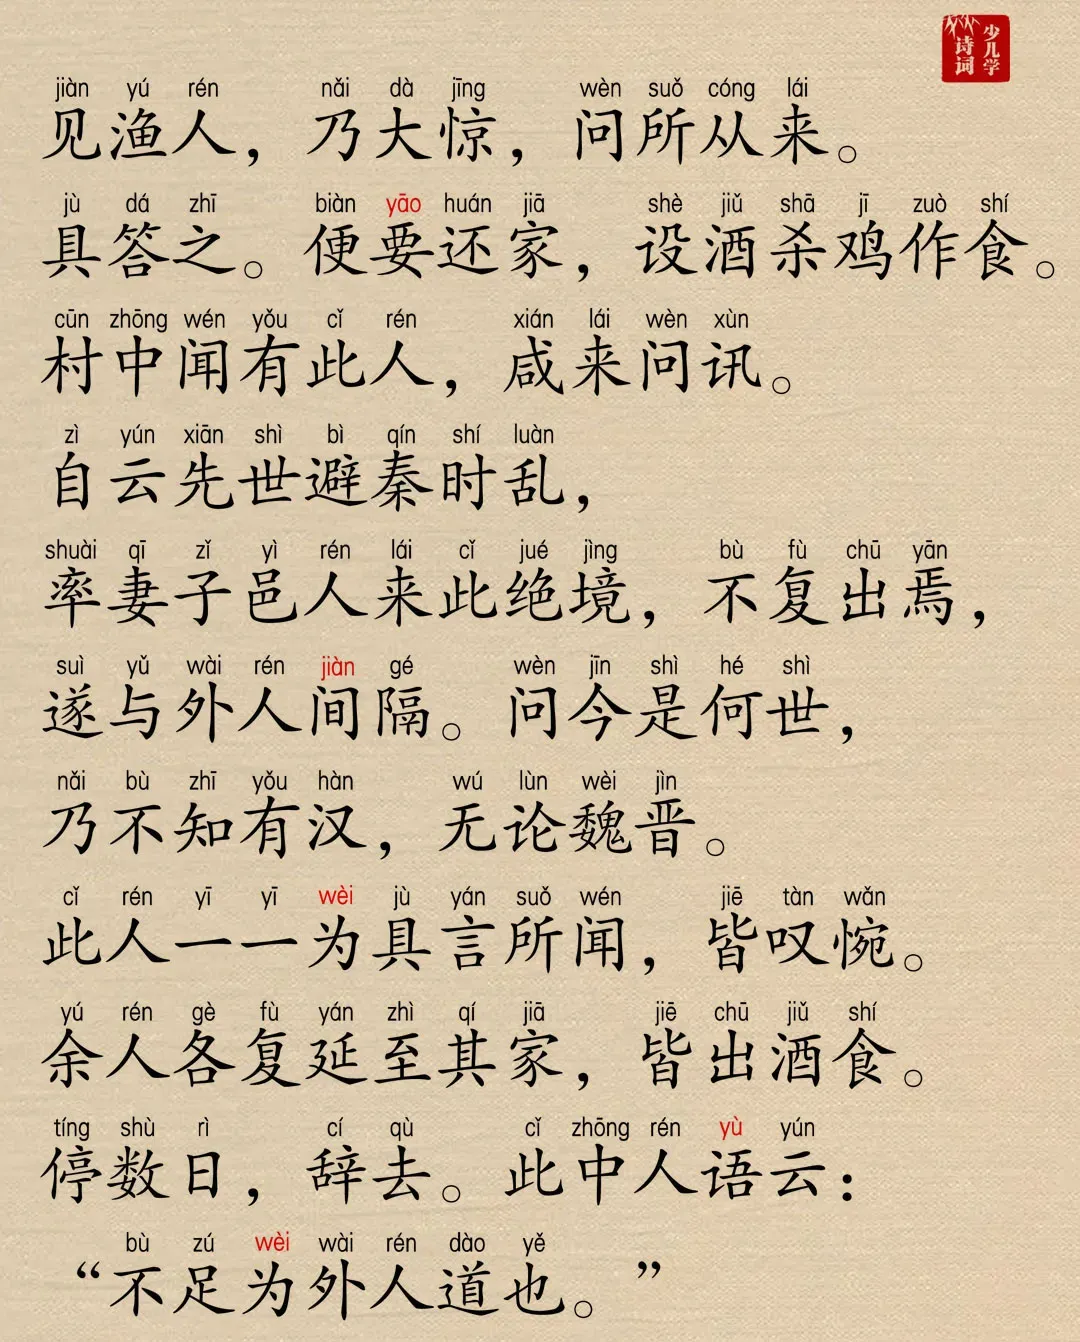 少儿学
诗词
jiàn yú rén nǎi dà jīng wèn suǒ cóng lái
见渔人，乃大惊，问所从来。
jù dá zhī biàn yāo huán jiā shè jiǔ shā jī zuò shí
具答之。便要还家，设酒杀鸡作食。
cūn zhōng wén yǒu cǐ rén xián lái wèn xùn
村中闻有此人，咸来问讯。
zì yún xiān shì bì qín shí luàn
自云先世避秦时乱，
shuài qī zǐ yì rén lái cǐ jué jìng bù fù chū yān
率妻子邑人来此绝境，不复出焉，
suì yǔ wài rén jiàn gé wèn jīn shì hé shì
遂与外人间隔。问今是何世，
nǎi bù zhī yǒu hàn wú lùn wèi jìn
乃不知有汉，无论魏晋。
cǐ rén yī yī wèi jù yán suǒ wén jiē tàn wǎn
此人一一为具言所闻，皆叹惋。
yú rén gè fù yán zhì qí jiā jiē chū jiǔ shí
余人各复延至其家，皆出酒食。
tíng shù rì cí qù cǐ zhōng rén yù yún
停数日，辞去。此中人语云：
bù zú wèi wài rén dào yě
“不足为外人道也。”